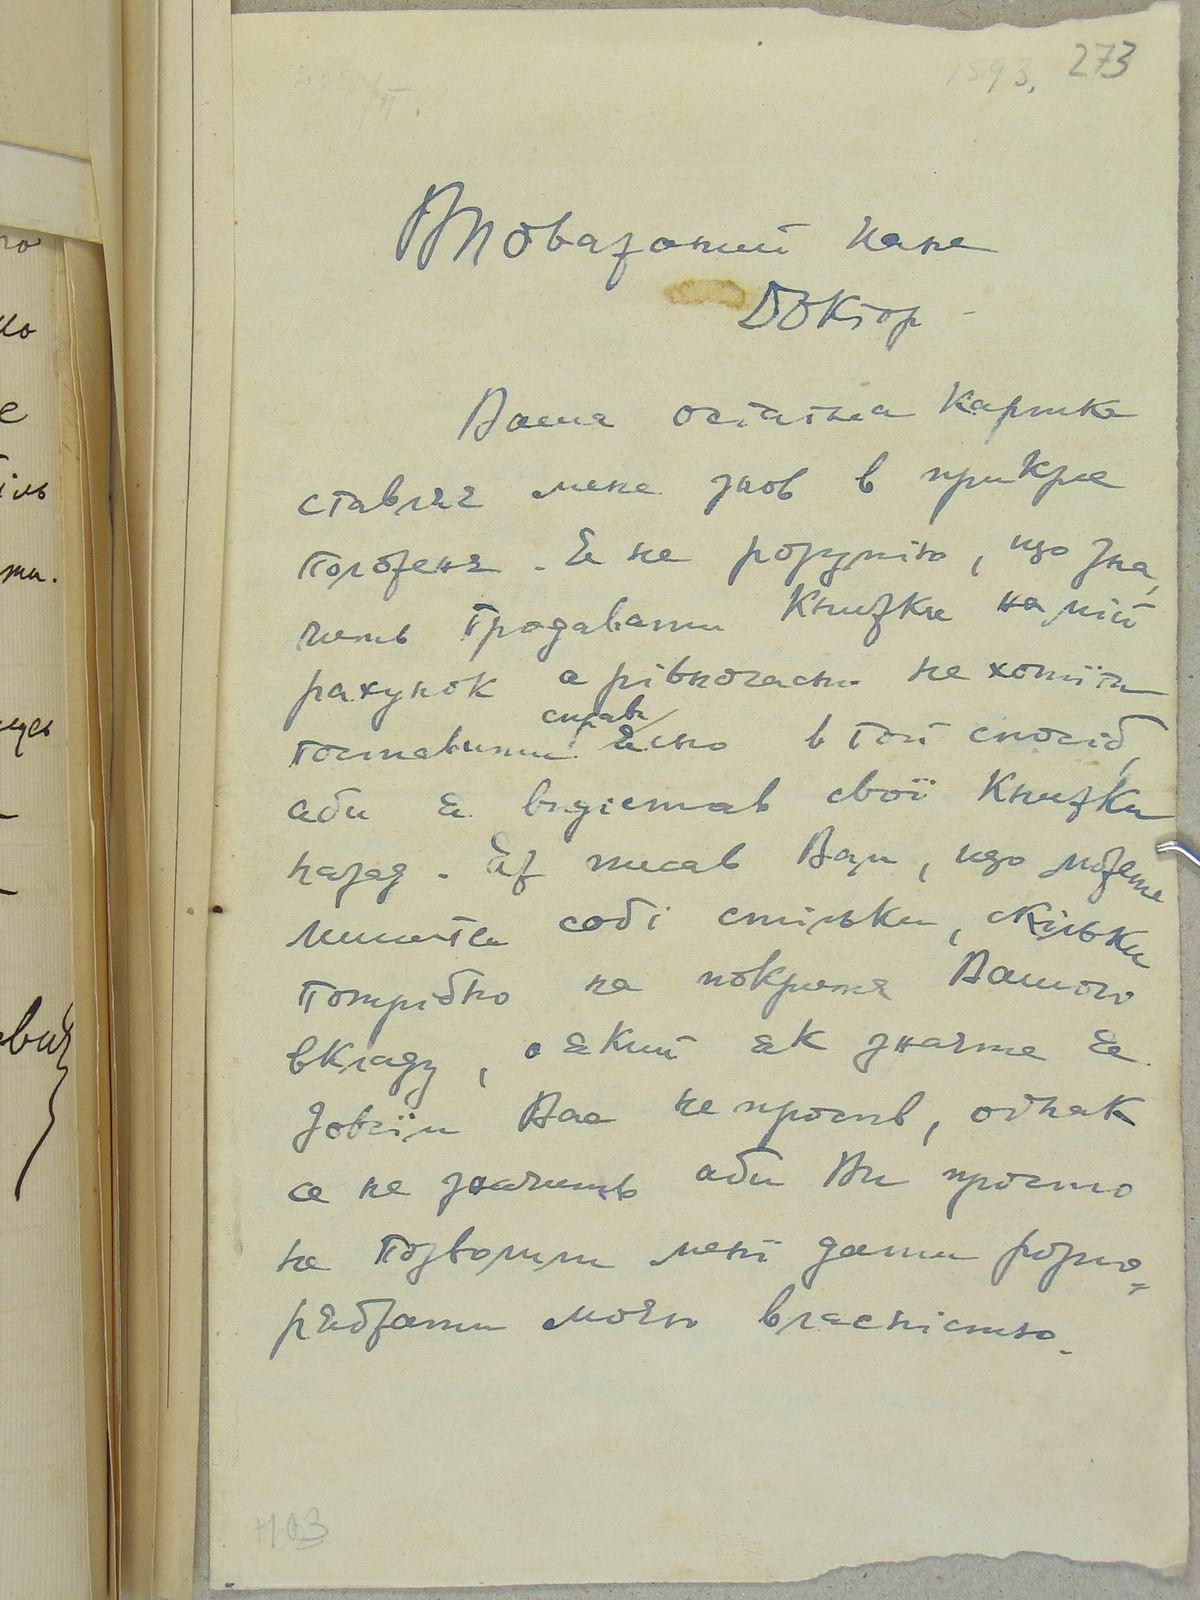 273
1893.
Вповажаний Пане
Доктор
Ваша остатна картка
ставляє мене знов в прикре
положенє. Я не розумію, що зна,
чить продавати книжки на мій
рахунок а рівночасно не хотїти
поставити справи ясно в той спосіб,
аби я видістав свої книжки
назад. Я писав Вам, що можете
лишити собі стільки, скільки
потрібно на покритя Вашого
вкладу, о який як знаєте я
зовсїм Вас не просив, однак
се не значить аби Ви просто
не позволили менї дати розпо,
ряджати моєю власністю.